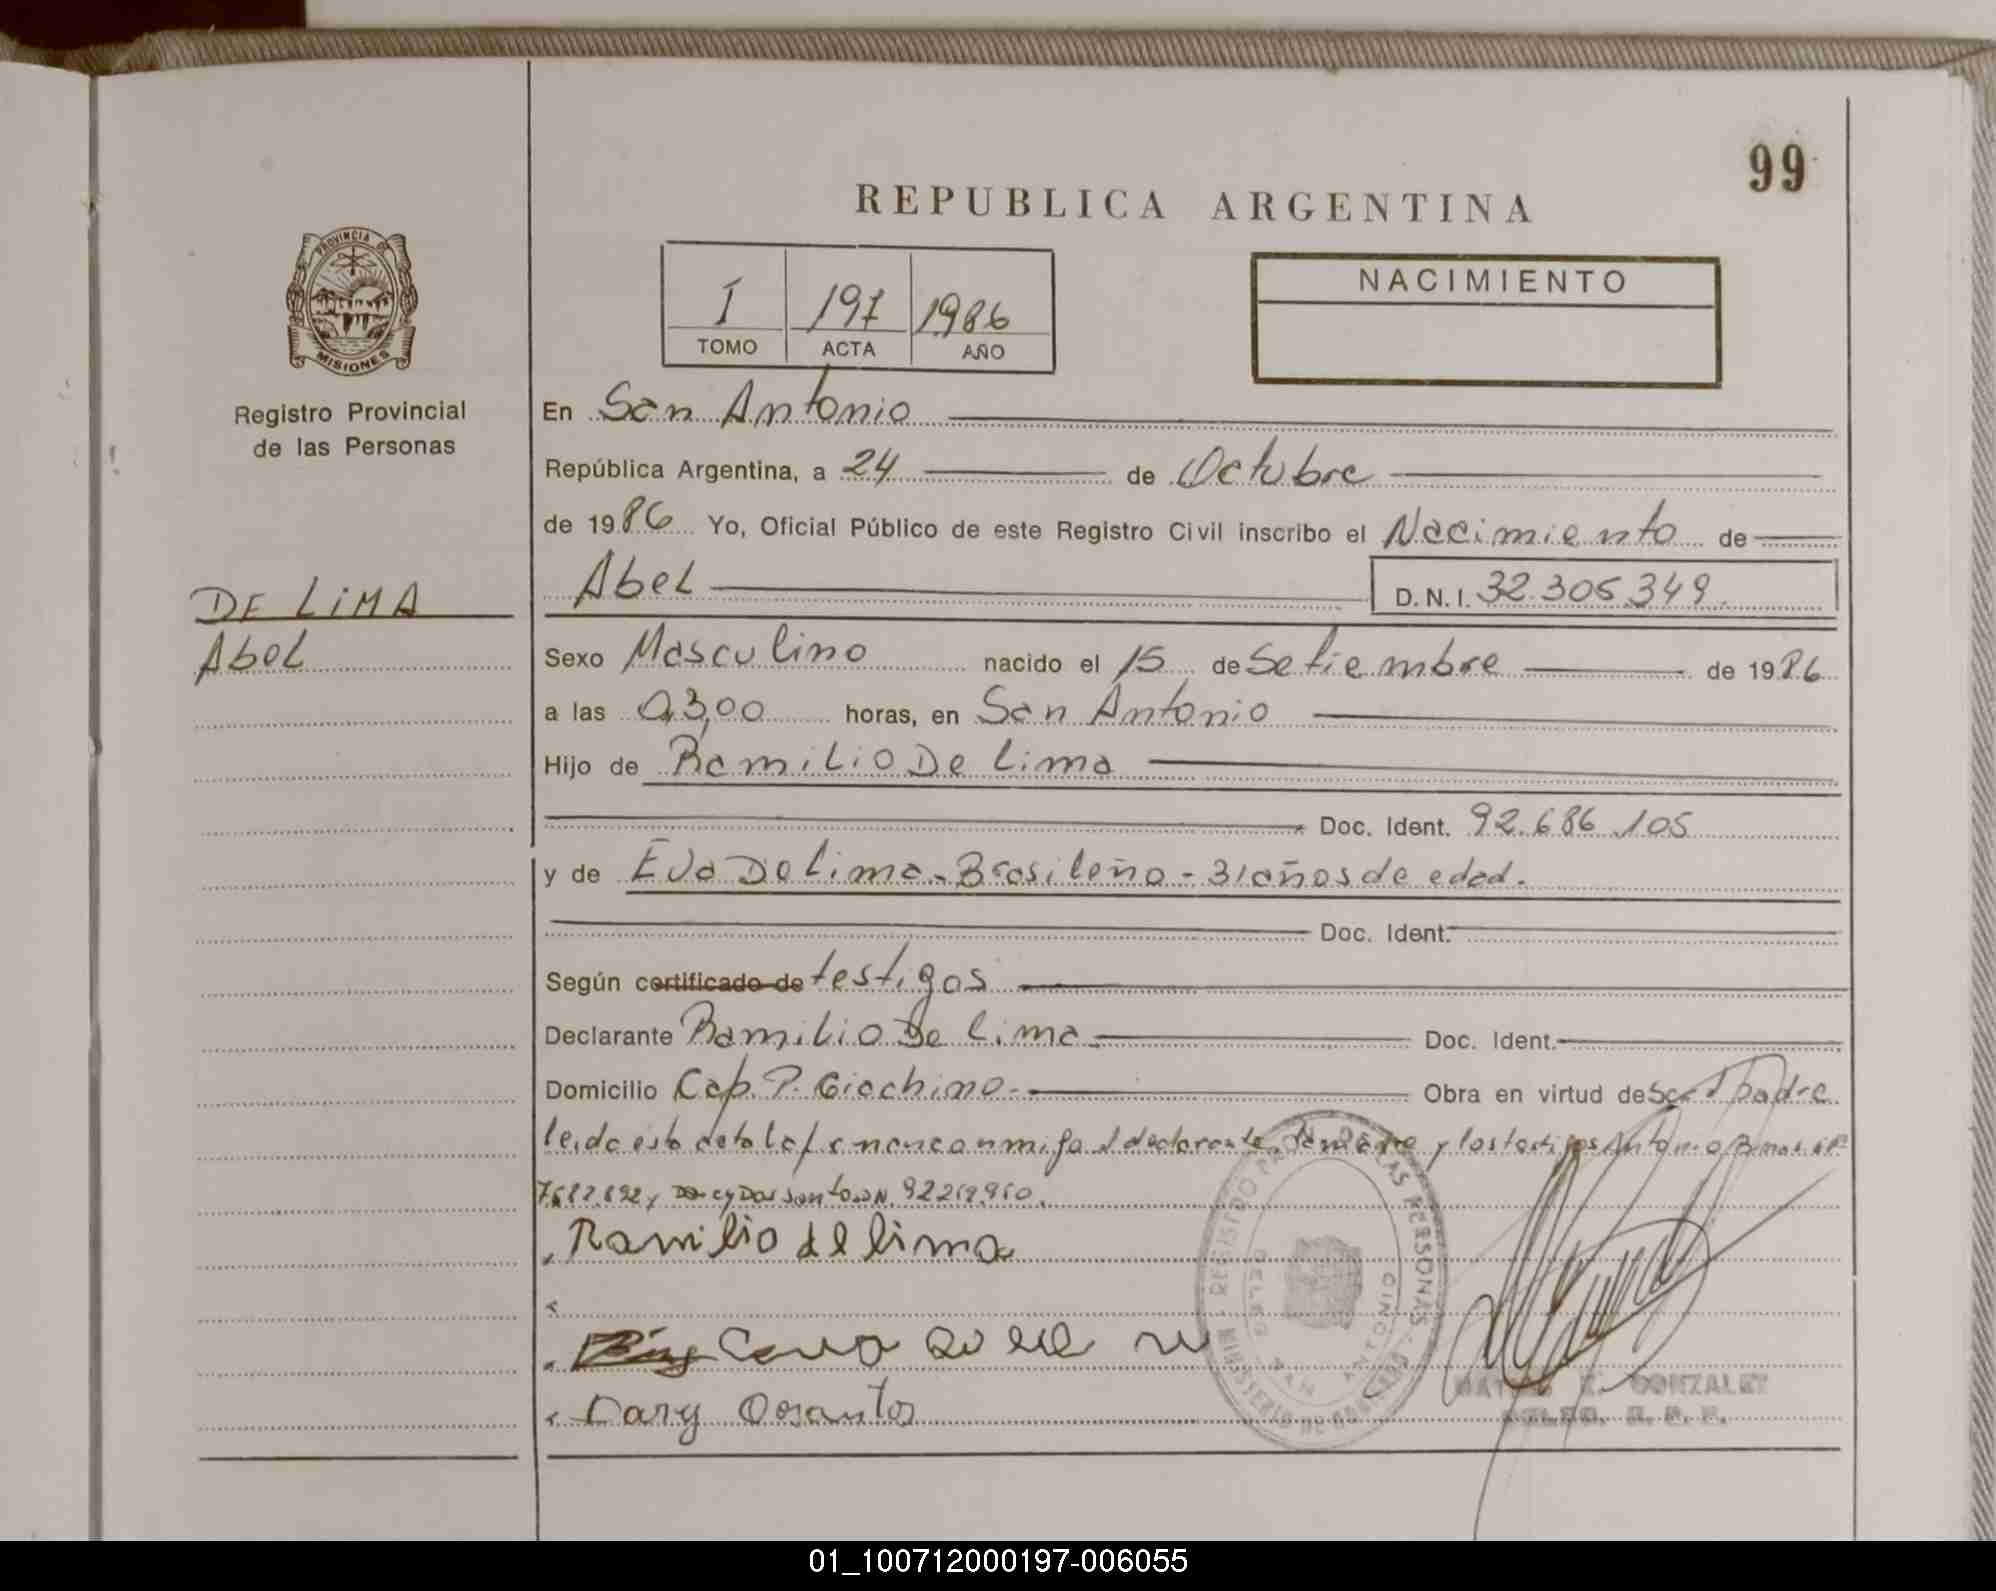 99
REPUBLICA ARGENTINA
PROVINCIA DE
MISIONES
Registro Provincial
de las Personas
I 197 1986
TOMO ACTA AÑO
NACIMIENTO
En San Antonio
República Argentina, a 24 de Octubre
de 1986 Yo, Oficial Público de este Registro Civil inscribo el Nacimiento de
Abel D.N.I. 32.305.349
DE LIMA
Abel
Sexo Masculino nacido el 15 de Setiembre de 1986
a las 03,00 horas, en San Antonio
Hijo de Ramilio De Lima
Doc. Ident. 92.686.105
y de Eva De Lima - Brasileña - 31 años de edad.
Doc. Ident.
Según certificado de testigos
Declarante Ramilio De Lima Doc. Ident.
Domicilio Cap. P. Giachino Obra en virtud de ser el padre
leida esta acta la firman conmigo el declarante, la madre y los testigos Antonio
y Darcy Dos Santos DN.
Ramilio de lima
Dary Dosantos
REGISTRO PROV. DE LAS PERSONAS
MINISTERIO DE GOBIERNO
DELEG. SAN ANTONIO
GONZALEZ
DELEG. R. P. P.
01_100712000197-006055